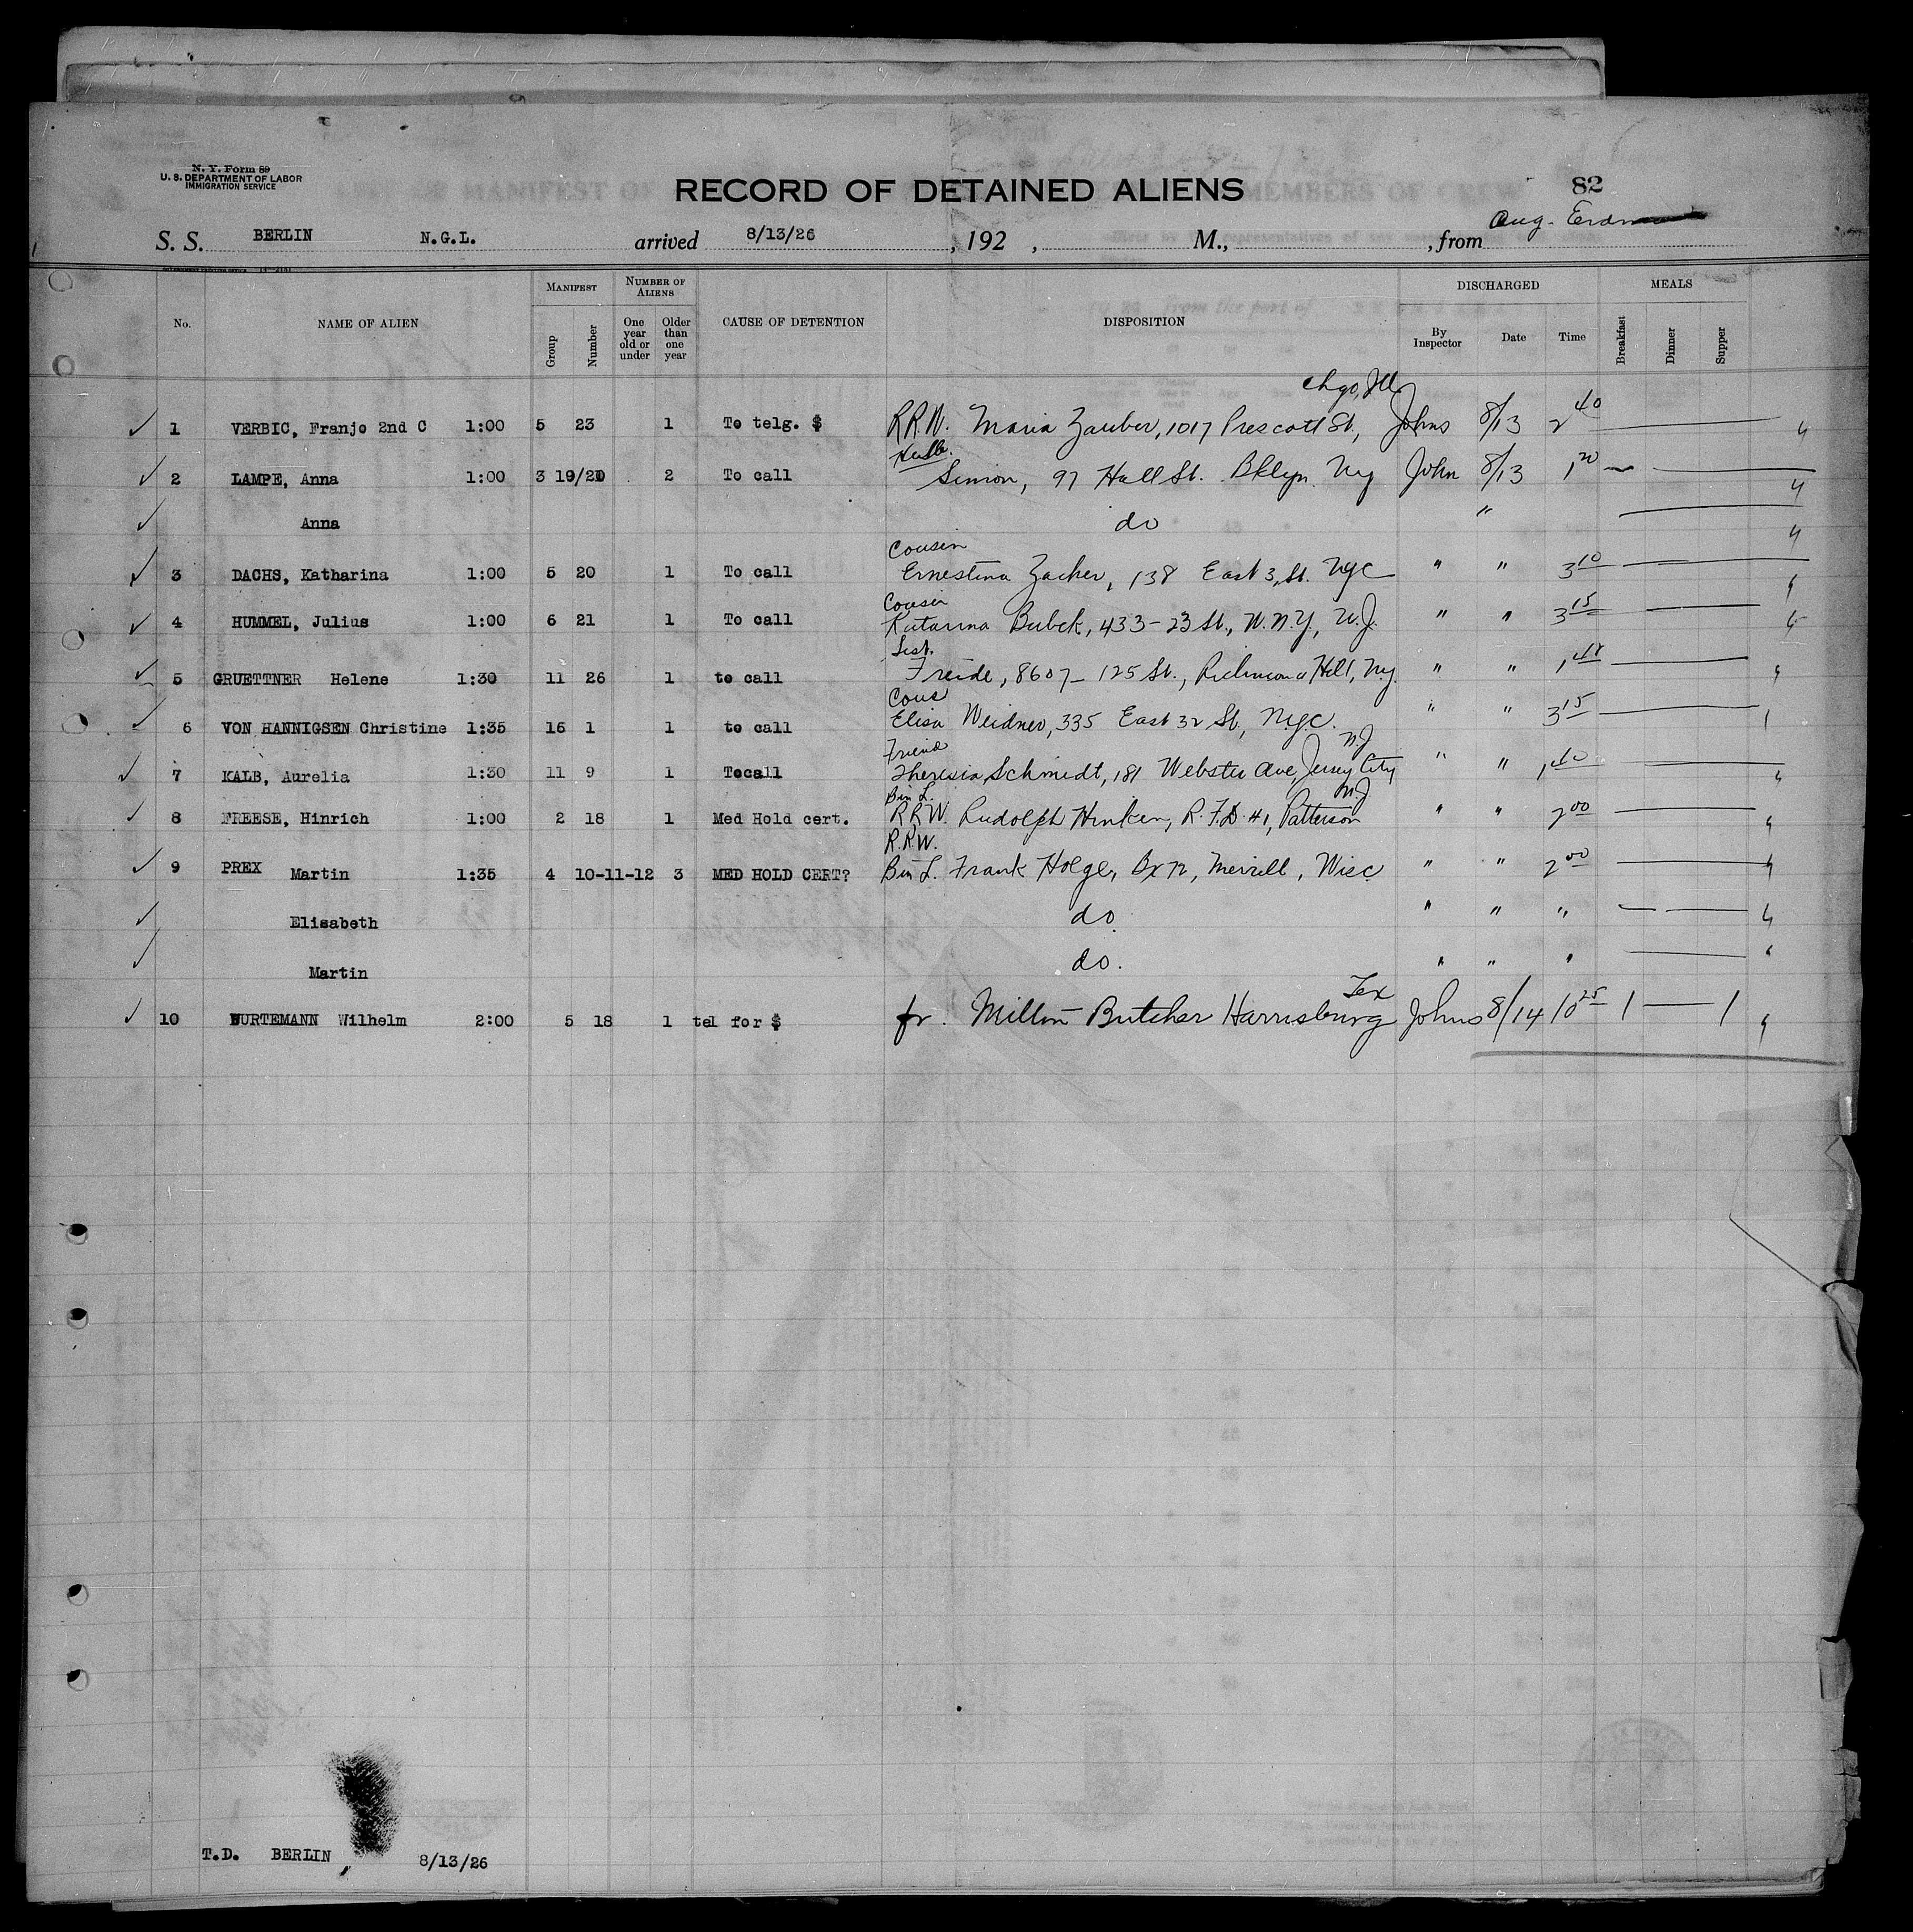 N. Y. Form 89
U. S. DEPARTMENT OF LABOR
IMMIGRATION SERVICE
RECORD OF DETAINED ALIENS
82
S. S. BERLIN N.G.L. arrived 8/13/26, 192 , M., , from Aug.
No. NAME OF ALIEN MANIFEST Group Number NUMBER OF ALIENS One year old or under Older than one year CAUSE OF DETENTION DISPOSITION DISCHARGED By Inspector Date Time MEALS Breakfast Dinner Supper
Chgo, Ill
1 VERBIC, Franjo 2nd C 1:00 5 23 1 To telg. $ R.R.W. Maria Zauber, 1017 Prescott St., Johns 8/13 2 40
Husb.
2 LAMPE, Anna 1:00 3 19/20 2 To call Simon, 97 Hall St. Bklyn Ny John 8/13 1 20
Anna do "
Cousin
3 DACHS, Katharina 1:00 5 20 1 To call Ernestina Zacher, 138 East 3, St. NYC " " 3 10
Cousin
4 HUMMEL, Julius 1:00 6 21 1 To call Katarina Bubek, 433-23 St., W.N.Y., N.J. " " 3 15
Sist.
5 GRUETTNER Helene 1:30 11 26 1 to call Freide, 8607-125 St., Richmond Hill, Ny. " "
Cous
6 VON HANNIGSEN Christine 1:35 16 1 1 to call Elisa Weidner, 335 East 32 St., N.Y.C. " " 3 15
Friend N.J
7 KALB, Aurelia 1:30 11 9 1 Tocall Theresia Schmidt, 181 Webster Ave, Jersey City " " 1 40
B in L. N.J
8 FREESE, Hinrich 1:00 2 18 1 Med Hold cert. R.R.W. Rudolph Hinken, R.F.D. #1, Patterson " " 2 00
R.R.W.
9 PREX Martin 1:35 4 10-11-12 3 MED HOLD CERT? B in L. Frank Holge, Bx 72, Merrill, Wisc " " 2 00
Elisabeth do " " "
Martin do. " " "
Tex
10 WURTEMANN Wilhelm 2:00 5 18 1 tel for $ fr. Milton Butcher Harrisburg Johns 8/14 10 25 1 — 1
T.D. BERLIN, 8/13/26